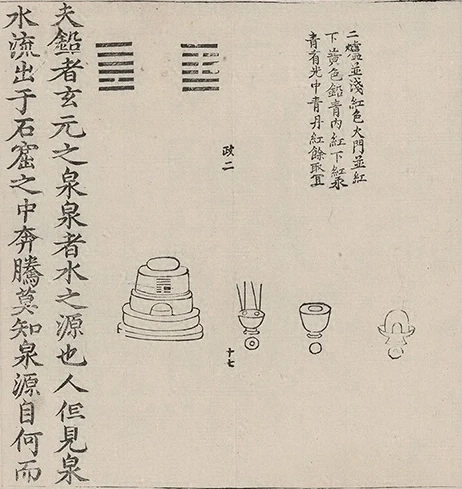 二爐並淺紅色火門並紅
下黃色鉛青內紅下紅汞
青有光中青丹紅餘取宜
政二
十七
夫鉛者玄元之泉泉者水之源也人但見泉
水流出于石窟之中奔騰莫知泉源自何而